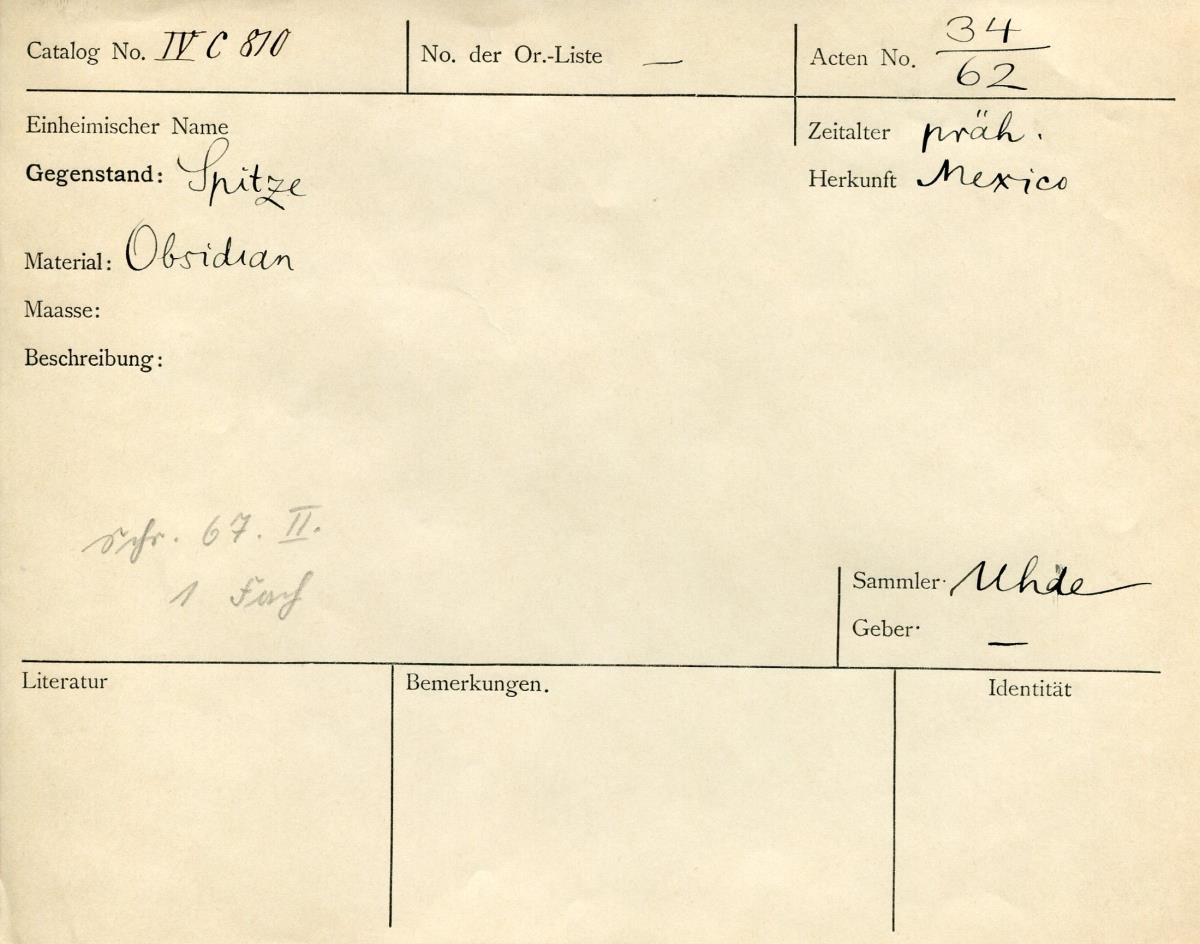 Catalog No. IV C 810
No. der Or.-Liste —
Acten No. 34/62
Einheimischer Name
Zeitalter präh.
Gegenstand: Spitze
Herkunft Mexico
Material: Obsidian
Maasse:
Beschreibung:
Schr. 67. II.
1 Fach
Sammler· Uhde
Geber· —
Literatur
Bemerkungen.
Identität